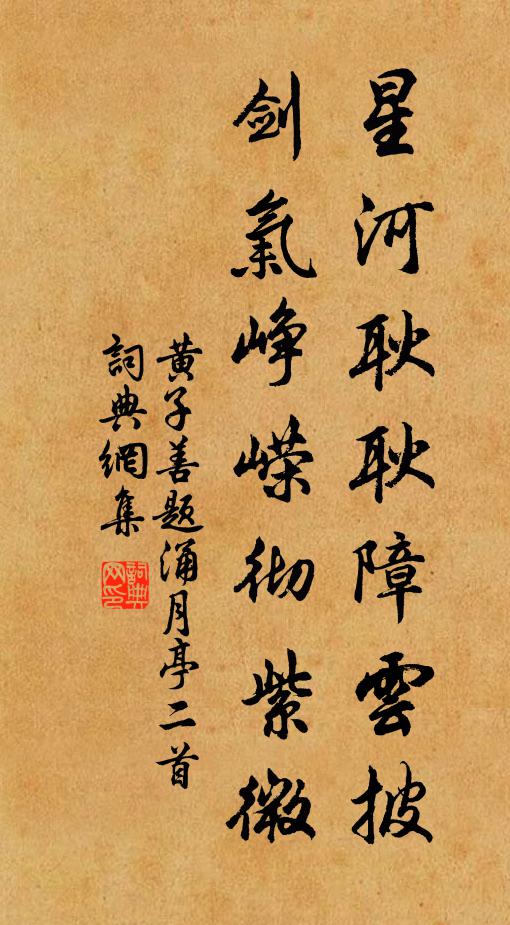 星河耿耿障雲披
剑氣峥嵘彻紫微
黄子善题涌月亭二首
詞典網集
詞典网印